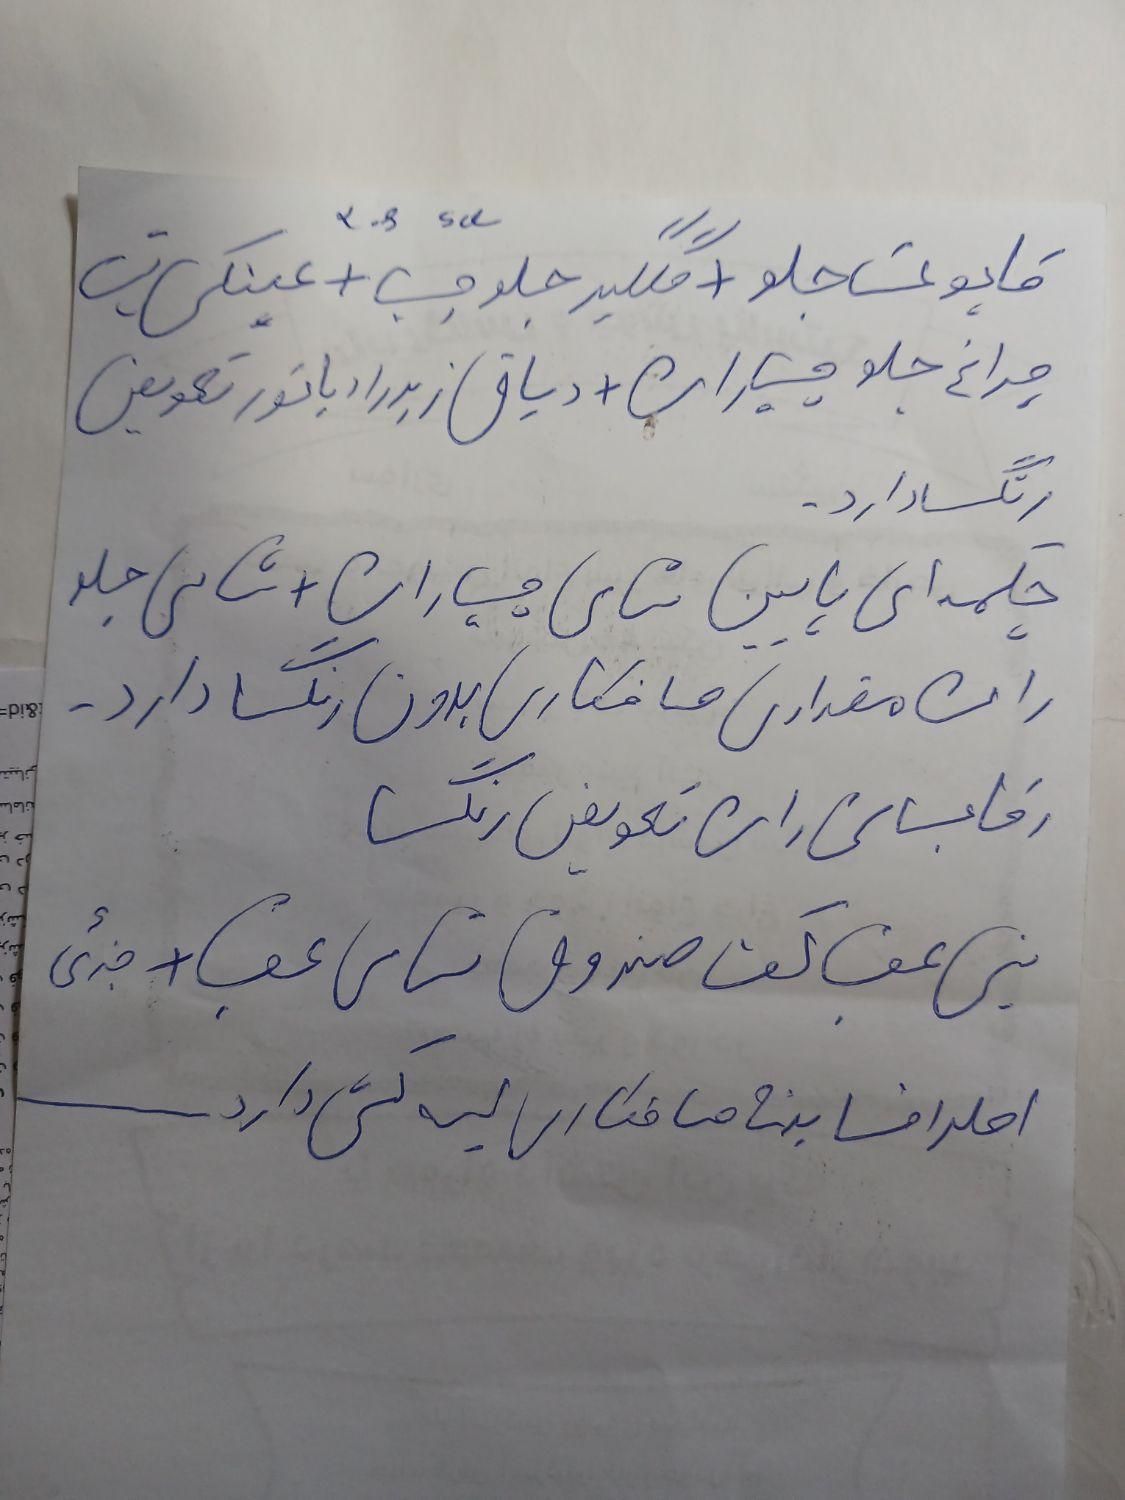 ۲۰۶ sd
قاپوعتاجلو + گلگیر جلو چپ + عینکی پشت
چراغ جلو چپ راست + دیاق زیر رادیاتور تعویض
رنگ دارد -
چکمه ای پایین شاسی چپ راست + شاسی جلو
راست مقداری صافکاری بدون رنگ دارد -
رکاب سمت راست تعویض رنگ
سینی عقب کف صندوق شاسی عقب + جزئی
اطراف بدنه صافکاری لیسه کشی دارد